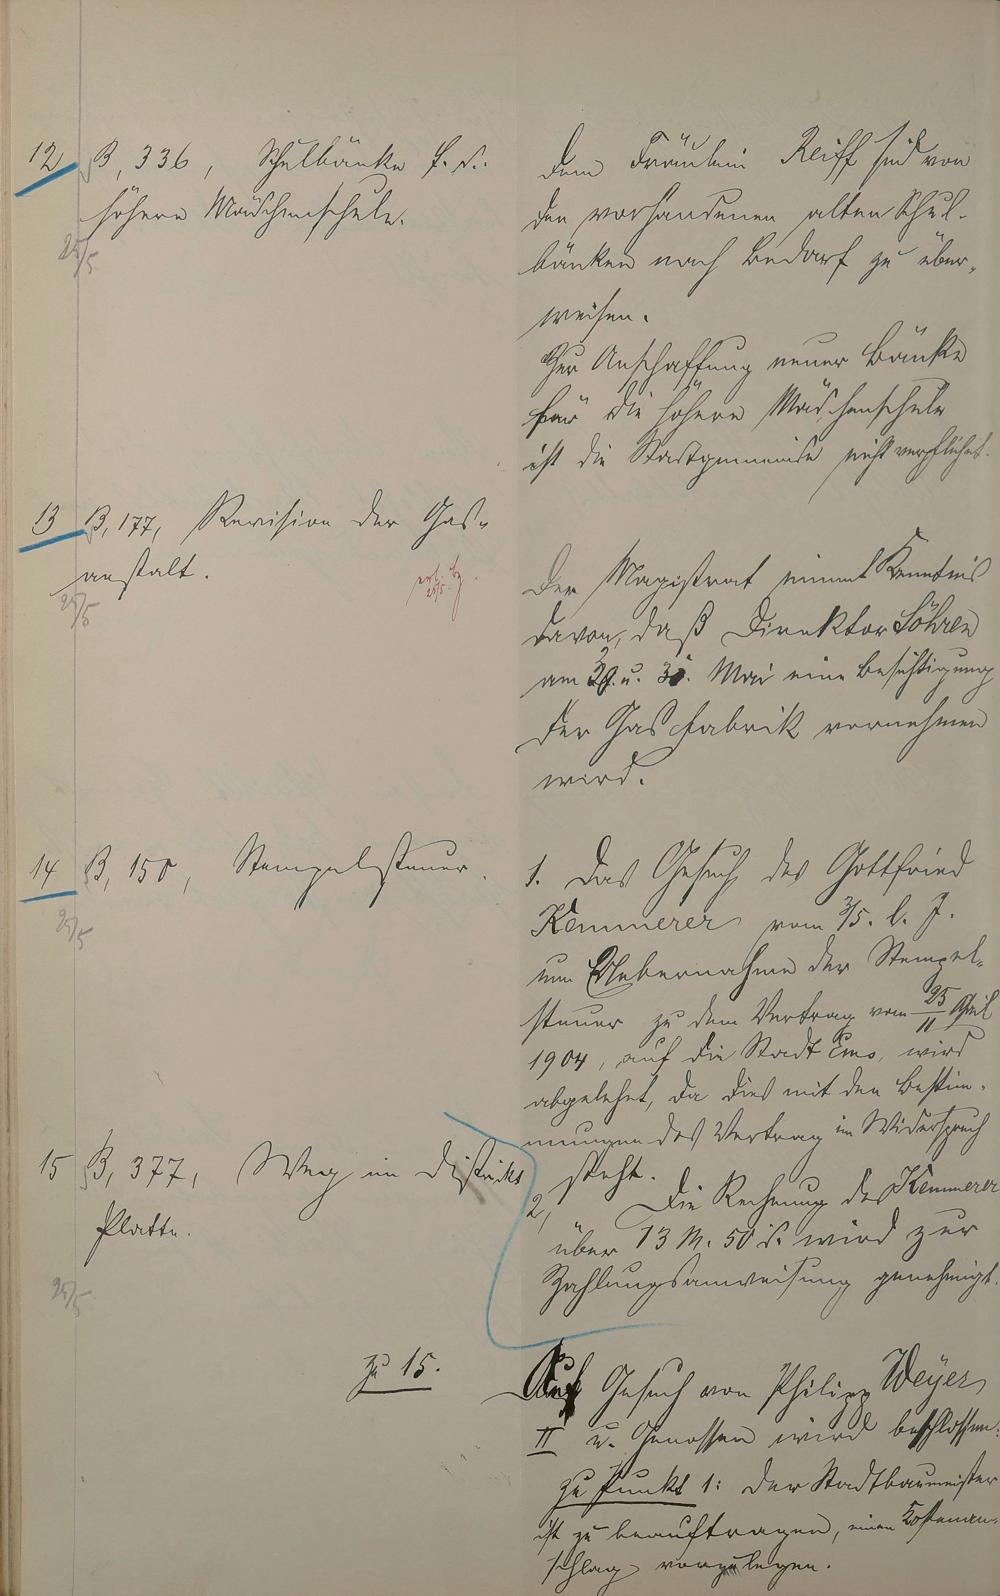 12 B, 336, Schulbänke f. d.
höhere Mädchenschule.
25/5
Dem Fräulein Reiff sind von
den vorhandenen alten Schul-
bänken nach Bedarf zu über-
weisen.
Zur Anschaffung neuer Bänke
für die höhere Mädchenschule
ist die Stadtgemeinde nicht verpflichtet.
13 B, 177, Revision der Gas-
anstalt.
25/5
25/5.
Der Magistrat nimmt Kenntnis
davon, daß Direktor Söhren
am u. Mai eine Besichtigung
der Gasfabrik vornehmen
wird.
14 B, 150, Stempelsteuer.
25/5
1. Das Gesuch des Gottfried
Kemmerer vom 3/5. l. J.
um Uebernahme der Stempel-
steuer zu dem Vertrag vom 25/11 April
1904, auf die Stadt Ems, wird
abgelehnt, da dies mit den Bestim-
mungen des Vertrag im Widerspruch
steht.
2, Die Rechnung des Kemmerer
über 13 M. 50 wird zur
Zahlungsanweisung genehmigt.
15 B, 377, Weg im Distrikt
Platte.
25/5
zu 15.
Auf Gesuch von Philipp Weyer
II u. Genossen wird beschlossen:
zu Punkt 1: Der Stadtbaumeister
ist zu beauftragen, einen Kostenan-
schlag vorzulegen.